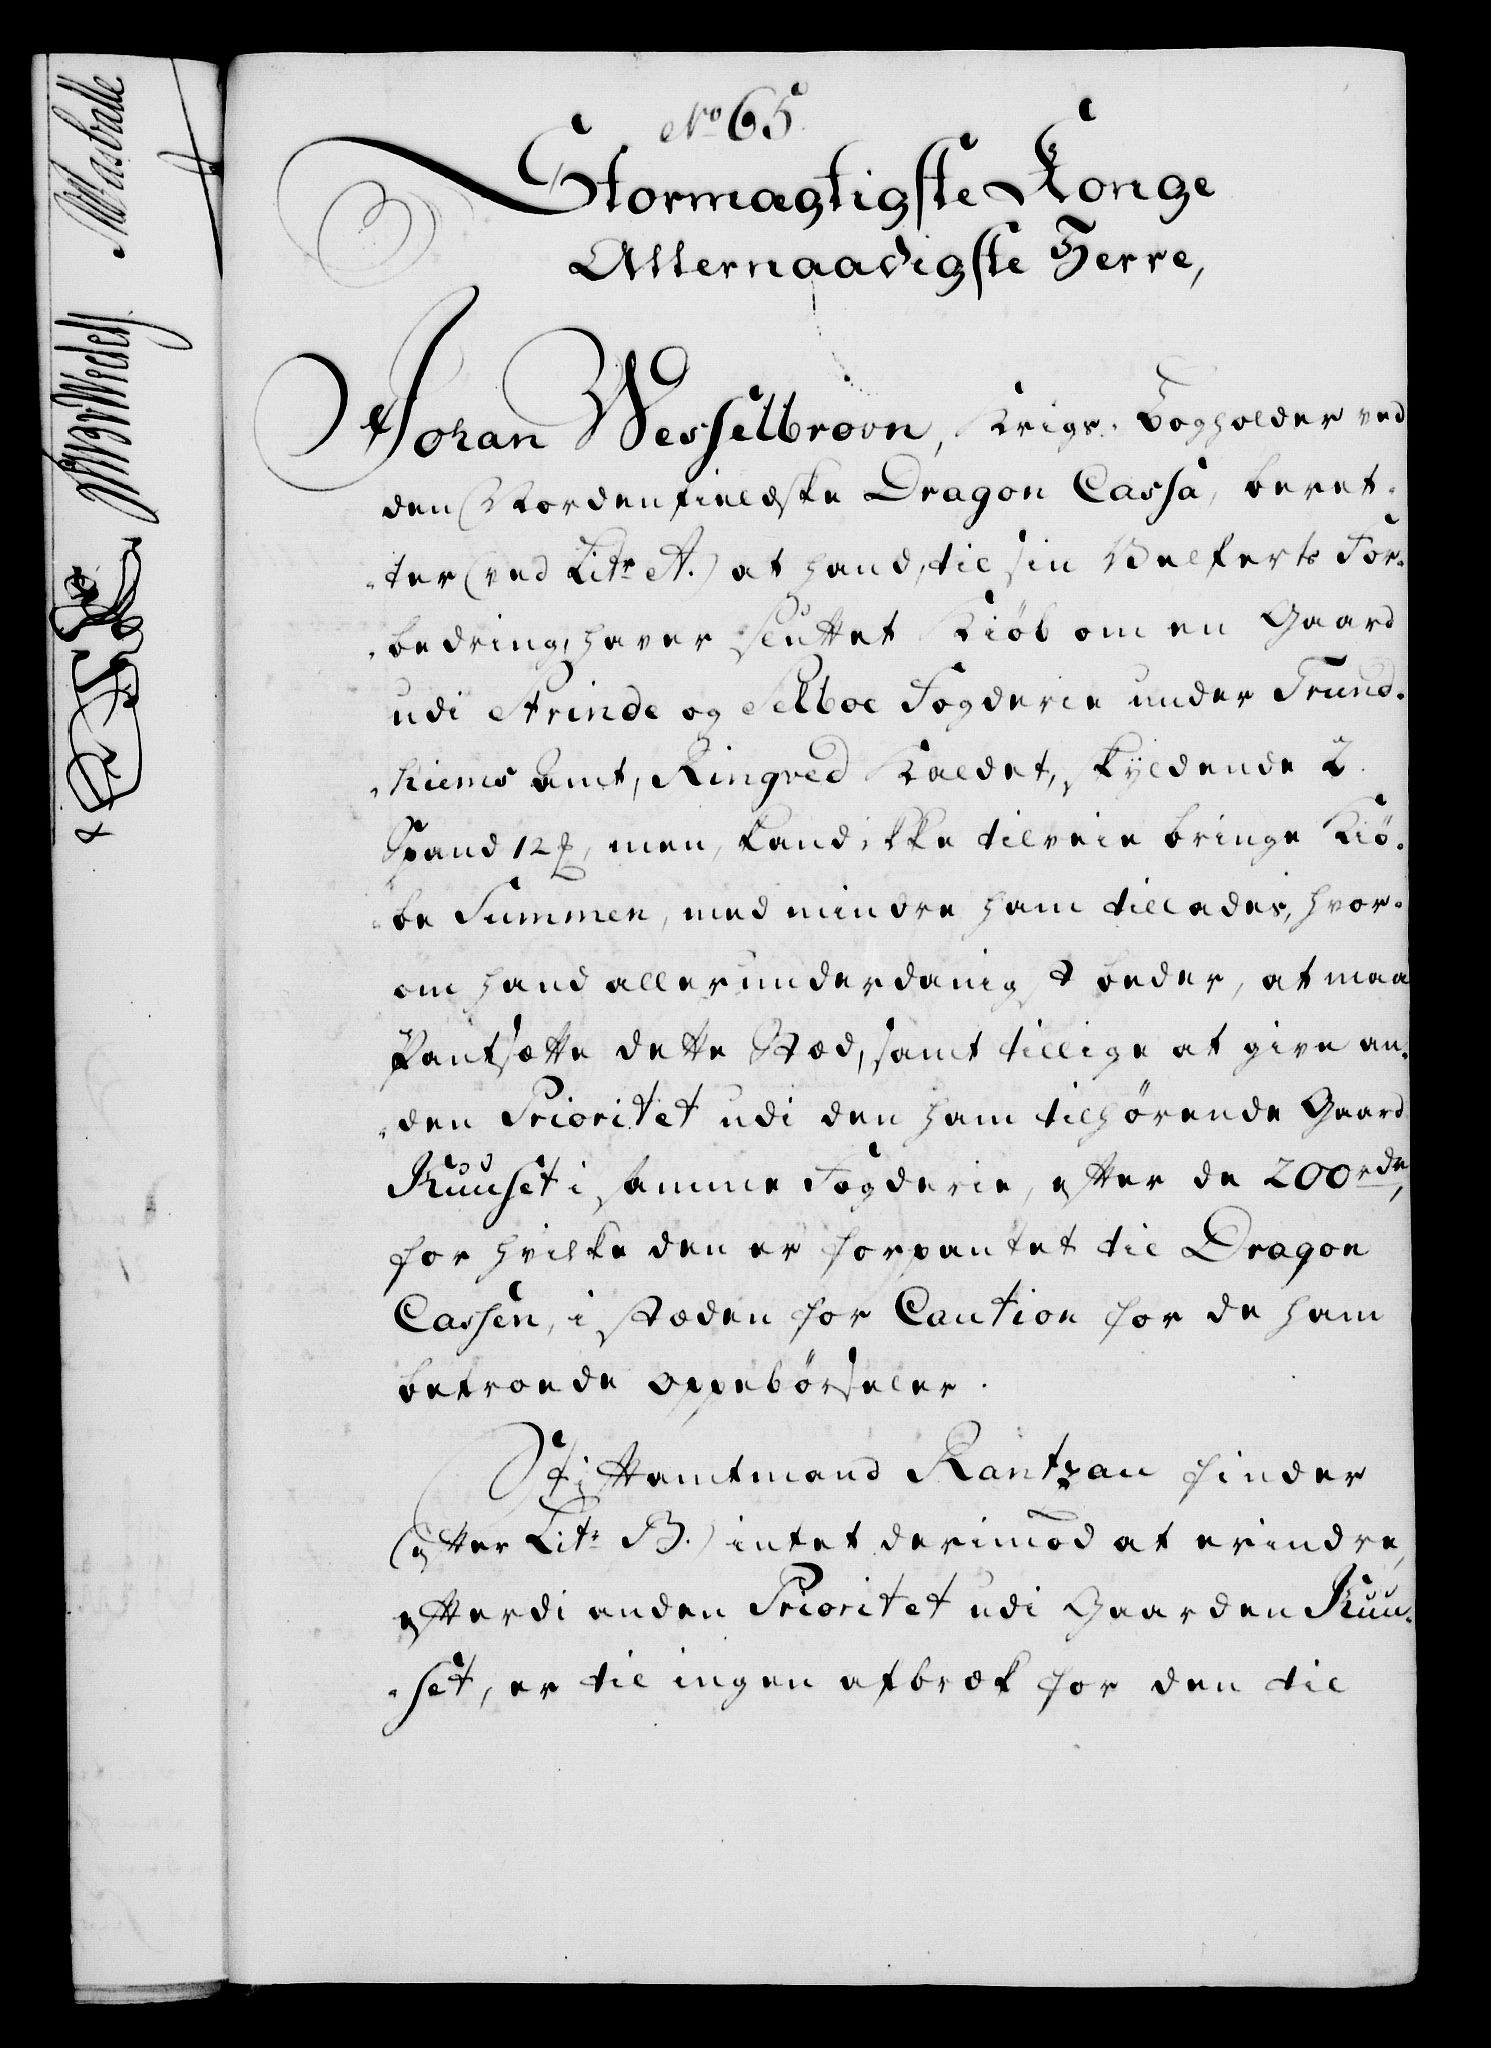 No 65.
Stormægtigste Konge
Allernaadigste Herre,
Johan Wesselbroon, Krigs-Bogholder ved
den Nordenfieldske Dragon Cassa, beret-
-ter (ved Litr. A.) at hand, til sin Velferts For-
-bedring, haver sluttet Kiöb om en Gaard
udi Strinde og Selboe Fogderie under Trund-
-hiems Amt, Ringved Kaldet, skÿldende 2
Spand 12, men, kand ikke tilveie bringe Kiö-
-be Summen, med mindre ham tillades, hvor-
om hand allerunderdanigst beder, at maa
Pantsætte dette Stæd, samt tillige at give an-
-den Prioritet udi den ham tilhörende Gaard
Kuuset i samme Fogderie, efter de 200 rdr,
for hvilke den er forpantet til Dragon
Cassen, i stæden for Caution for de ham
betroede oppebörseler.
Stiftamtmand Rantzau finder
(efter Litr. B.) intet derimod at erindre,
efterdi anden Prioritet udi Gaarden Kuu-
-set, er til ingen afbræk for den til